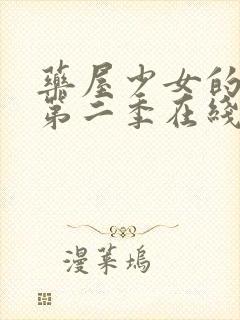 藥屋少女的
第二季在綫
漫菓塢